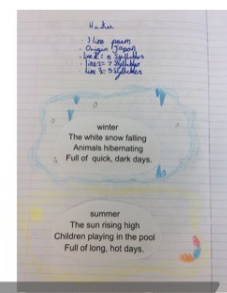 Haiku
3 line poem
Origin (Japan)
line 1: 5 Syllables
line 2= 7 Syllables
line 3= 5 Syllables
winter
The white snow falling
Animals hibernating
Full of quick, dark days.
summer
The sun rising high
Children playing in the pool
Full of long, hot days.